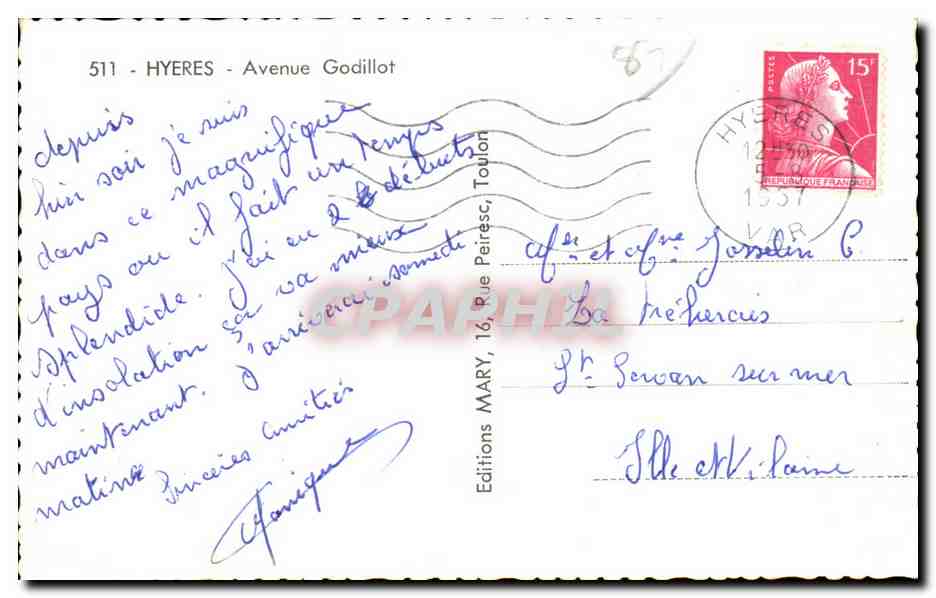 511 - HYERES - Avenue Godillot
depuis
hier soir je suis
dans ce magnifique
pays ou il fait un temps
splendide. J'ai eu 2 débuts
d'insolation ça va mieux
maintenant. J'arriverai samedi
matin
Sincères Amitiés
Editions MARY, 16, Rue Peiresc, Toulon
87
POSTES
15F
REPUBLIQUE FRANÇAISE
HYERES
12H30
1957
VAR
CPAPHIL
Mr et Mme Josselin P.
La
St Servan sur mer
Ille et Vilaine